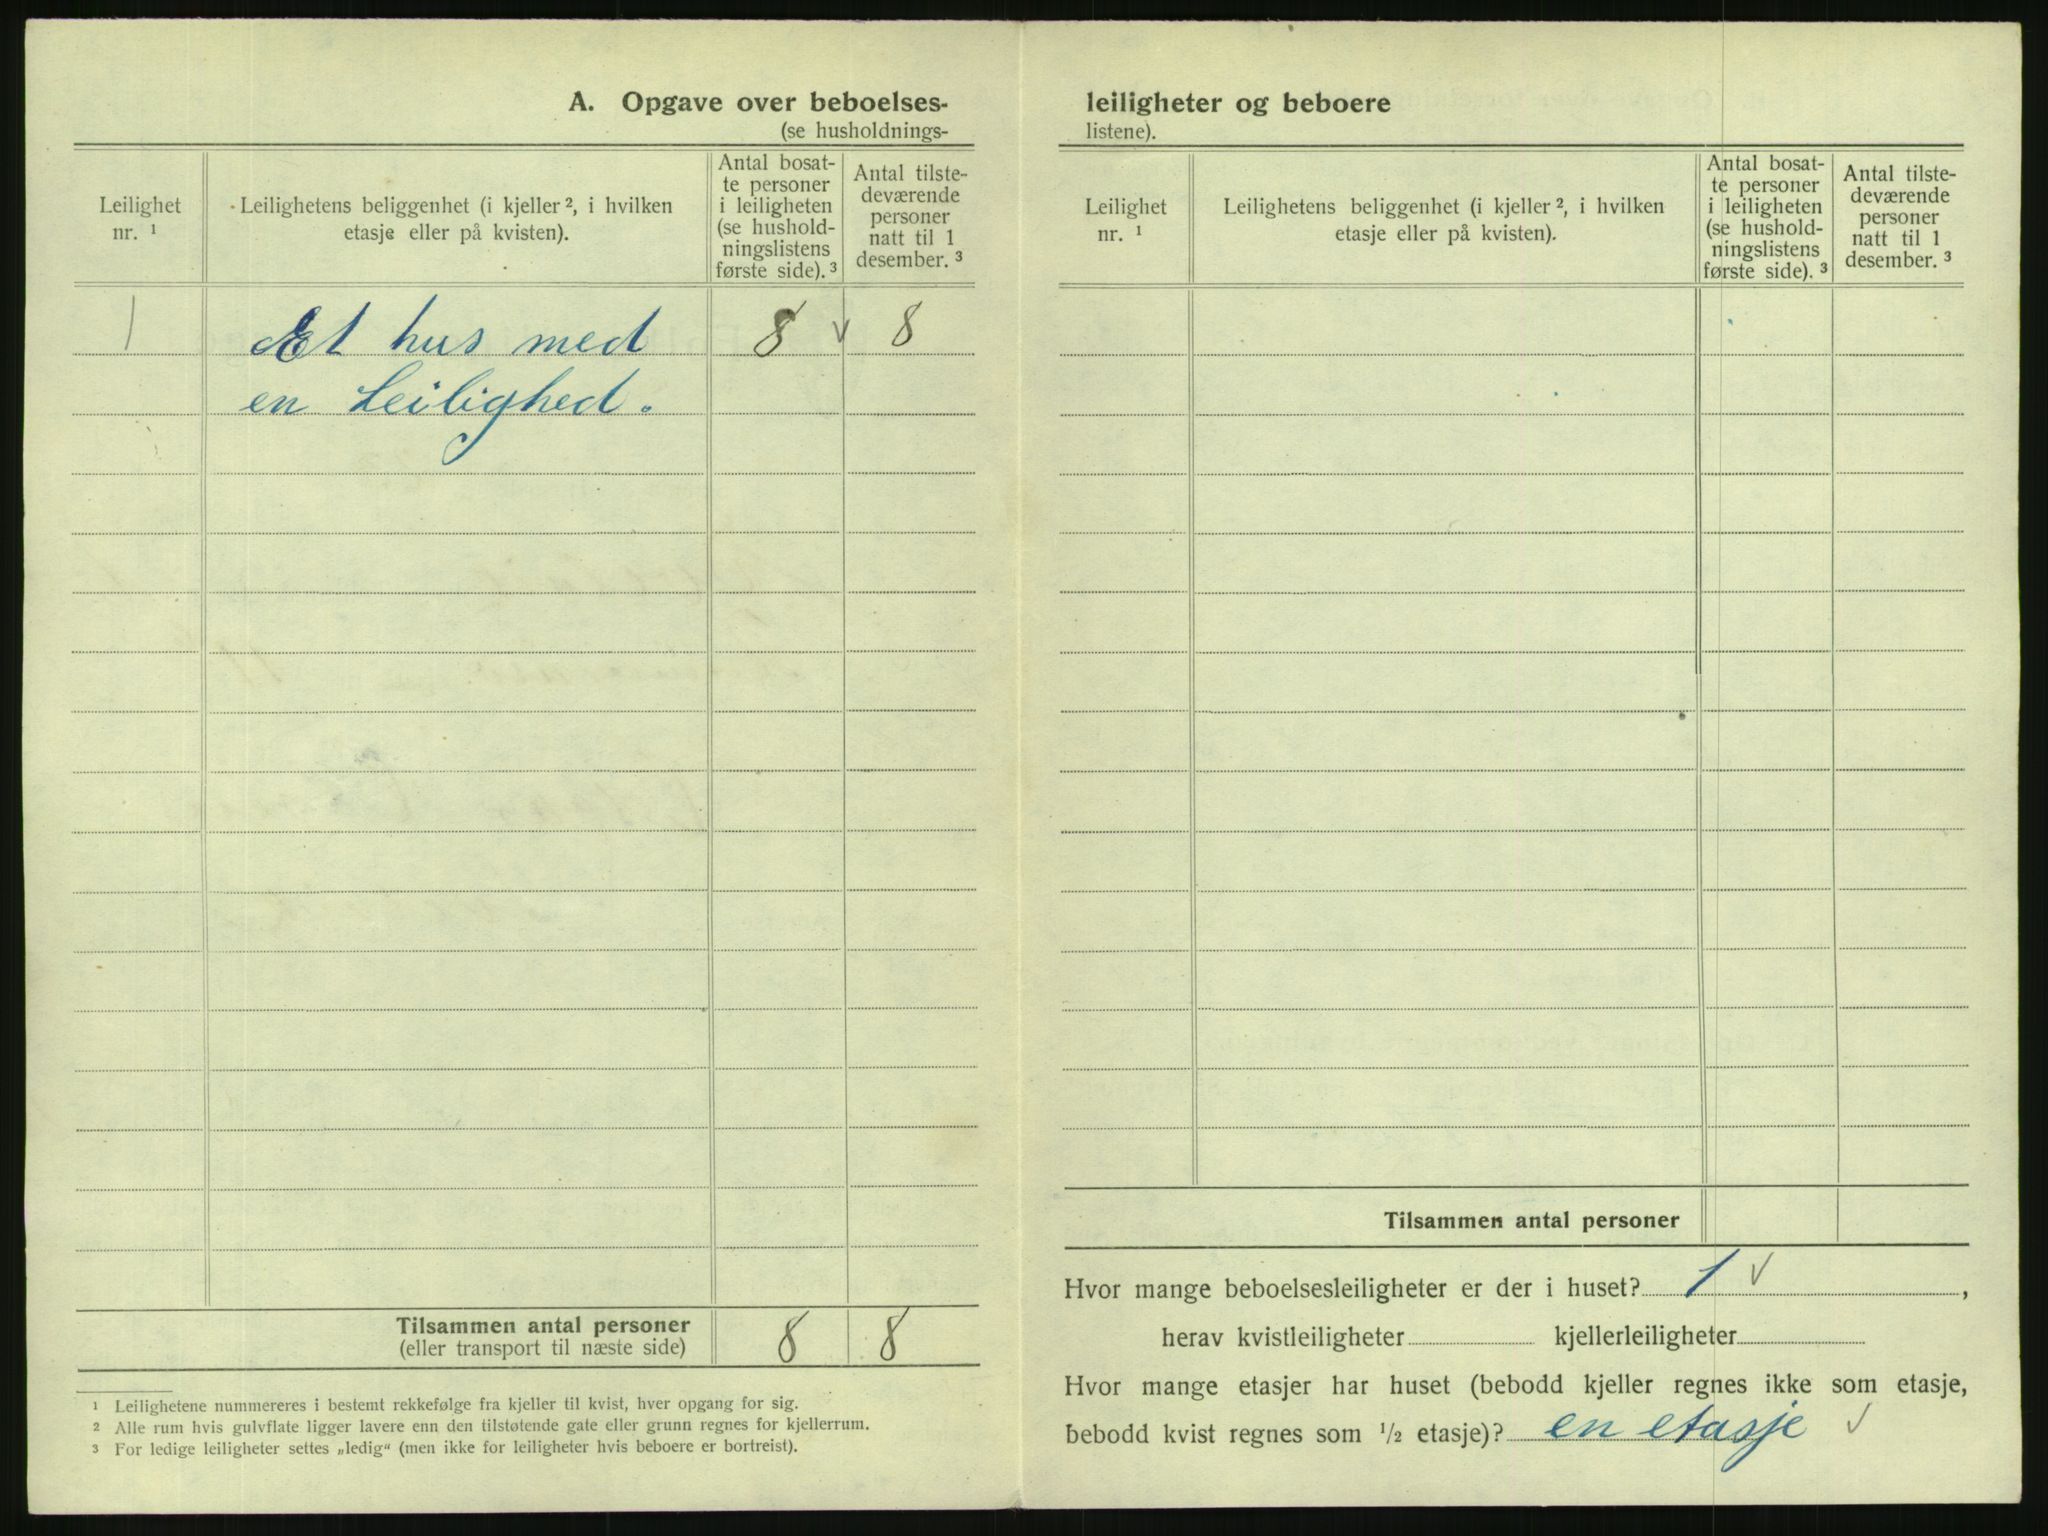 A. Opgave over beboelses-
(se husholdnings-
Leilighet
nr. ¹
Leilighetens beliggenhet (i kjeller ², i hvilken
etasje eller på kvisten).
Antal bosat-
te personer
i leiligheten
(se hushold-
ningslistens
første side). ³
Antal tilste-
deværende
personer
natt til 1
desember. ³
1 Et hus med 8 v 8
en Leilighed.
Tilsammen antal personer
(eller transport til næste side)
8 8
¹ Leilighetene nummereres i bestemt rekkefølge fra kjeller til kvist, hver opgang for sig.
² Alle rum hvis gulvflate ligger lavere enn den tilstøtende gate eller grunn regnes for kjellerrum.
³ For ledige leiligheter settes „ledig“ (men ikke for leiligheter hvis beboere er bortreist).
leiligheter og beboere
listene).
Leilighet
nr. ¹
Leilighetens beliggenhet (i kjeller ², i hvilken
etasje eller på kvisten).
Antal bosat-
te personer
i leiligheten
(se hushold-
ningslistens
første side). ³
Antal tilste-
deværende
personer
natt til 1
desember. ³
Tilsammen antal personer
Hvor mange beboelsesleiligheter er der i huset? 1 v ,
herav kvistleiligheter kjellerleiligheter
Hvor mange etasjer har huset (bebodd kjeller regnes ikke som etasje,
bebodd kvist regnes som ½ etasje)? en etasje v